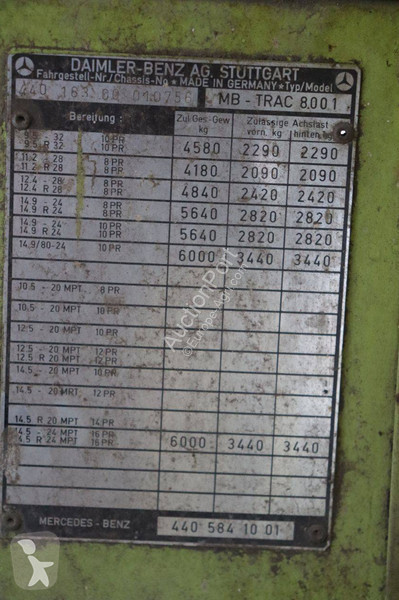 DAIMLER-BENZ AG. STUTTGART
Fahrgestell-Nr./Chassis-No * MADE IN GERMANY * Typ/Model
440 163 MB - TRAC 800 1
Bereifung: Zul.Ges.-Gew. kg Zulässige Achslast vorn. kg hinten kg
9.5 - 32 10 PR
9.5 R 32 10 PR 4580 2290 2290
11.2 - 28 8 PR
11.2 R 28 8 PR 4180 2090 2090
12.4 - 28 8 PR
12.4 R 28 8 PR 4840 2420 2420
14.9 - 24 8 PR
14.9 R 24 8 PR 5640 2820 2820
14.9 - 24 10 PR
14.9 R 24 10 PR 5640 2820 2820
14.9/80-24 10 PR 6000 3440 3440
10.5 - 20 MPT 8 PR
10.5 - 20 MPT 10 PR
12.5 - 20 MPT 10 PR
12.5 - 20 MPT 12 PR
12.5 R 20 MPT 12 PR
14.5 - 20 MPT 10 PR
14.5 - 20 MRT 12 PR
14.5 R 20 MPT 14 PR
14.5 - 24 MPT 16 PR
14.5 R 24 MPT 16 PR 6000 3440 3440
MERCEDES - BENZ 440 584 10 01
AuctionPort